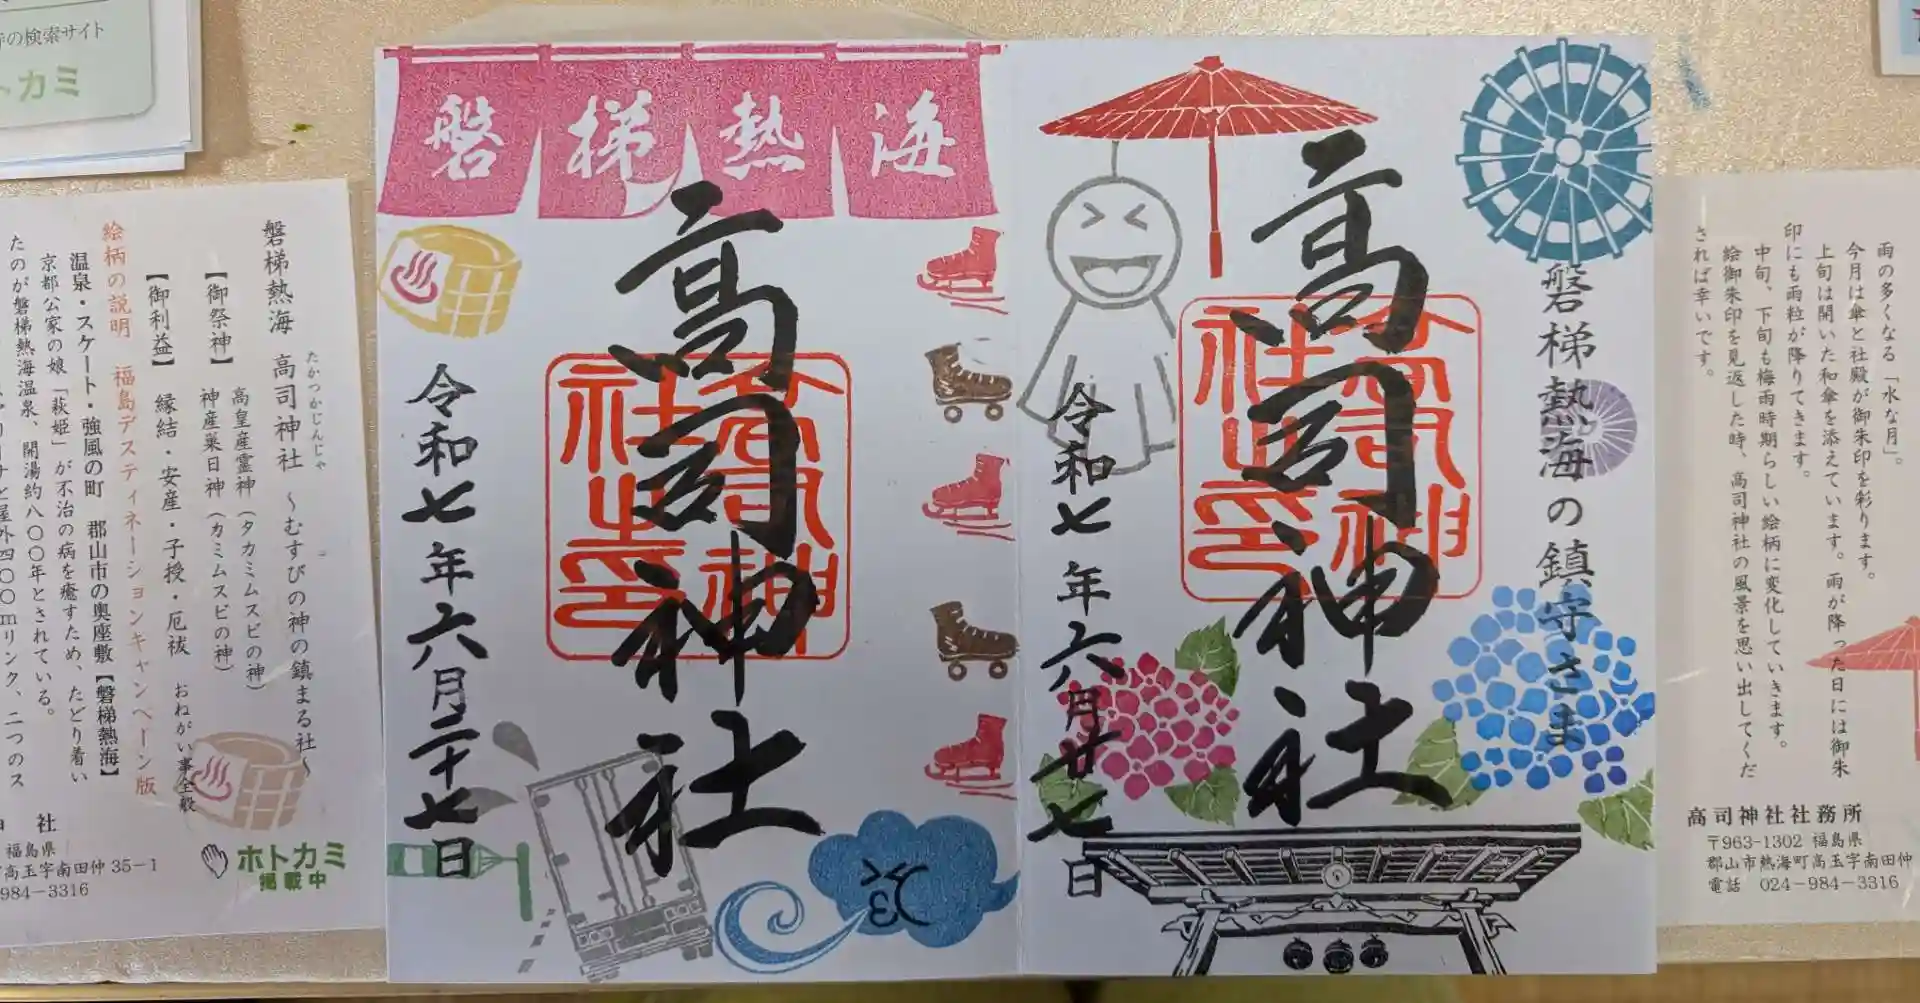 寺の検索サイト
トカミ
磐梯熱海 高司神社 ～むすびの神の鎮まる社～
たかつかじんじゃ
【御祭神】 高皇産霊神(タカミムスビの神)
神産巣日神(カミムスビの神)
【御利益】 縁結・安産・子授・厄祓 おねがい事全般
絵柄の説明 福島デスティネーションキャンペーン版
温泉・スケート・強風の町 郡山市の奥座敷【磐梯熱海】
京都公家の娘「萩姫」が不治の病を癒すため、たどり着い
たのが磐梯熱海温泉、開湯約八〇〇年とされている。
と屋外四〇〇mリンク、二つのス
社
福島県
高玉字南田仲35-1
984-3316
ホトカミ
掲載中
磐梯熱海
高司神社
高司神社之印
令和七年六月二十七日
磐梯熱海の鎮守さま
高司神社
高司神社之印
令和七年六月廿七日
雨の多くなる「水な月」。
今月は傘と社殿が御朱印を彩ります。
上旬は開いた和傘を添えています。雨が降った日には御朱
印にも雨粒が降りてきます。
中旬、下旬も梅雨時期らしい絵柄に変化していきます。
絵御朱印を見返した時、高司神社の風景を思い出してくだ
されば幸いです。
高司神社社務所
〒963-1302 福島県
郡山市熱海町高玉字南田仲
電話 024-984-3316